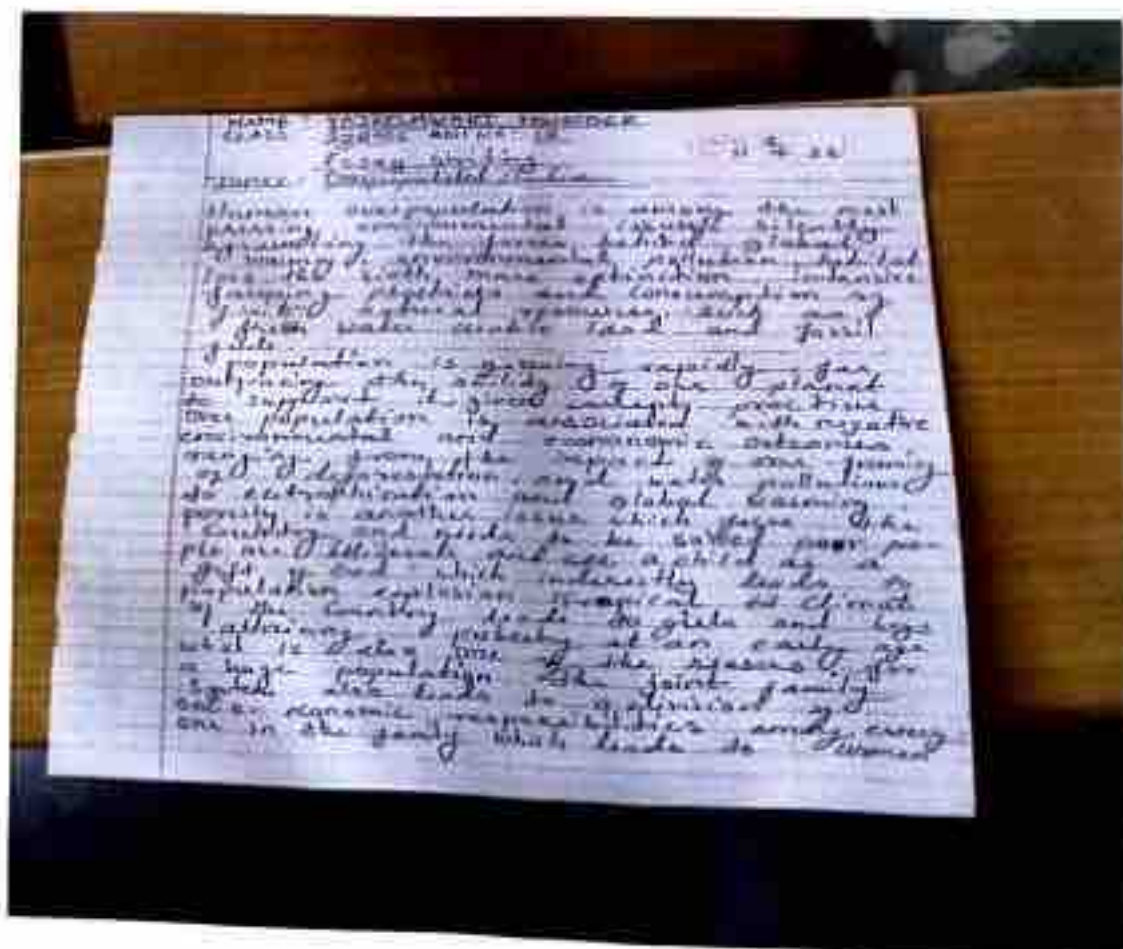 NAME
CLASS
Essay writing
Human overpopulation is among the most
pressing environmental issues, silently
aggravating the forces behind global
warming, environmental pollution habitat
loss the sixth mass extinction intensive
farming practices and consumption of
finite natural resources such as
fresh water arable land and fossil
fuels
population is growing rapidly far
outpacing the ability of our planet
to support it given
Over population is associated with negative
environmental and economic outcomes
ranging from the impact of over farming
of deforestation and water pollution
to eutrophication and global warming.
poverty is another issue which the
country and needs to be solved poor peo
ple are illiterate and a child as a
gift of God which indirectly leads to
population explosion tropical climat
of the country leads to girls and boys
attaining puberty at an early age
what is also one of the reasons for
a huge population the joint family
system also leads to a division of
economic responsibilities every
one in the family which leads to women